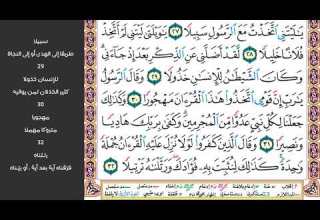 يَٰلَيۡتَنِي ٱتَّخَذۡتُ مَعَ ٱلرَّسُولِ سَبِيلٗا ٢٧ يَٰوَيۡلَتَىٰ لَيۡتَنِي لَمۡ أَتَّخِذۡ
فُلَانًا خَلِيلٗا ٢٨ لَّقَدۡ أَضَلَّنِي عَنِ ٱلذِّكۡرِ بَعۡدَ إِذۡ جَآءَنِيۗ
وَكَانَ ٱلشَّيۡطَٰنُ لِلۡإِنسَٰنِ خَذُولٗا ٢٩ وَقَالَ ٱلرَّسُولُ
يَٰرَبِّ إِنَّ قَوۡمِي ٱتَّخَذُواْ هَٰذَا ٱلۡقُرۡءَانَ مَهۡجُورٗا ٣٠ وَكَذَٰلِكَ
جَعَلۡنَا لِكُلِّ نَبِيٍّ عَدُوّٗا مِّنَ ٱلۡمُجۡرِمِينَۗ وَكَفَىٰ بِرَبِّكَ هَادِيٗا
وَنَصِيرٗا ٣١ وَقَالَ ٱلَّذِينَ كَفَرُواْ لَوۡلَا نُزِّلَ عَلَيۡهِ ٱلۡقُرۡءَانُ جُمۡلَةٗ
وَٰحِدَةٗۚ كَذَٰلِكَ لِنُثَبِّتَ بِهِۦ فُؤَادَكَۖ وَرَتَّلۡنَٰهُ تَرۡتِيلٗا ٣٢
سبيلا
طريقا إلى الهدى أو إلى النجاة
29
للإنسان خذولا
كثير الخذلان لمن يواليه
30
مهجورا
متروكا مهملا
32
رتلناه
فرقناه آية بعد آية ، أو بيناه